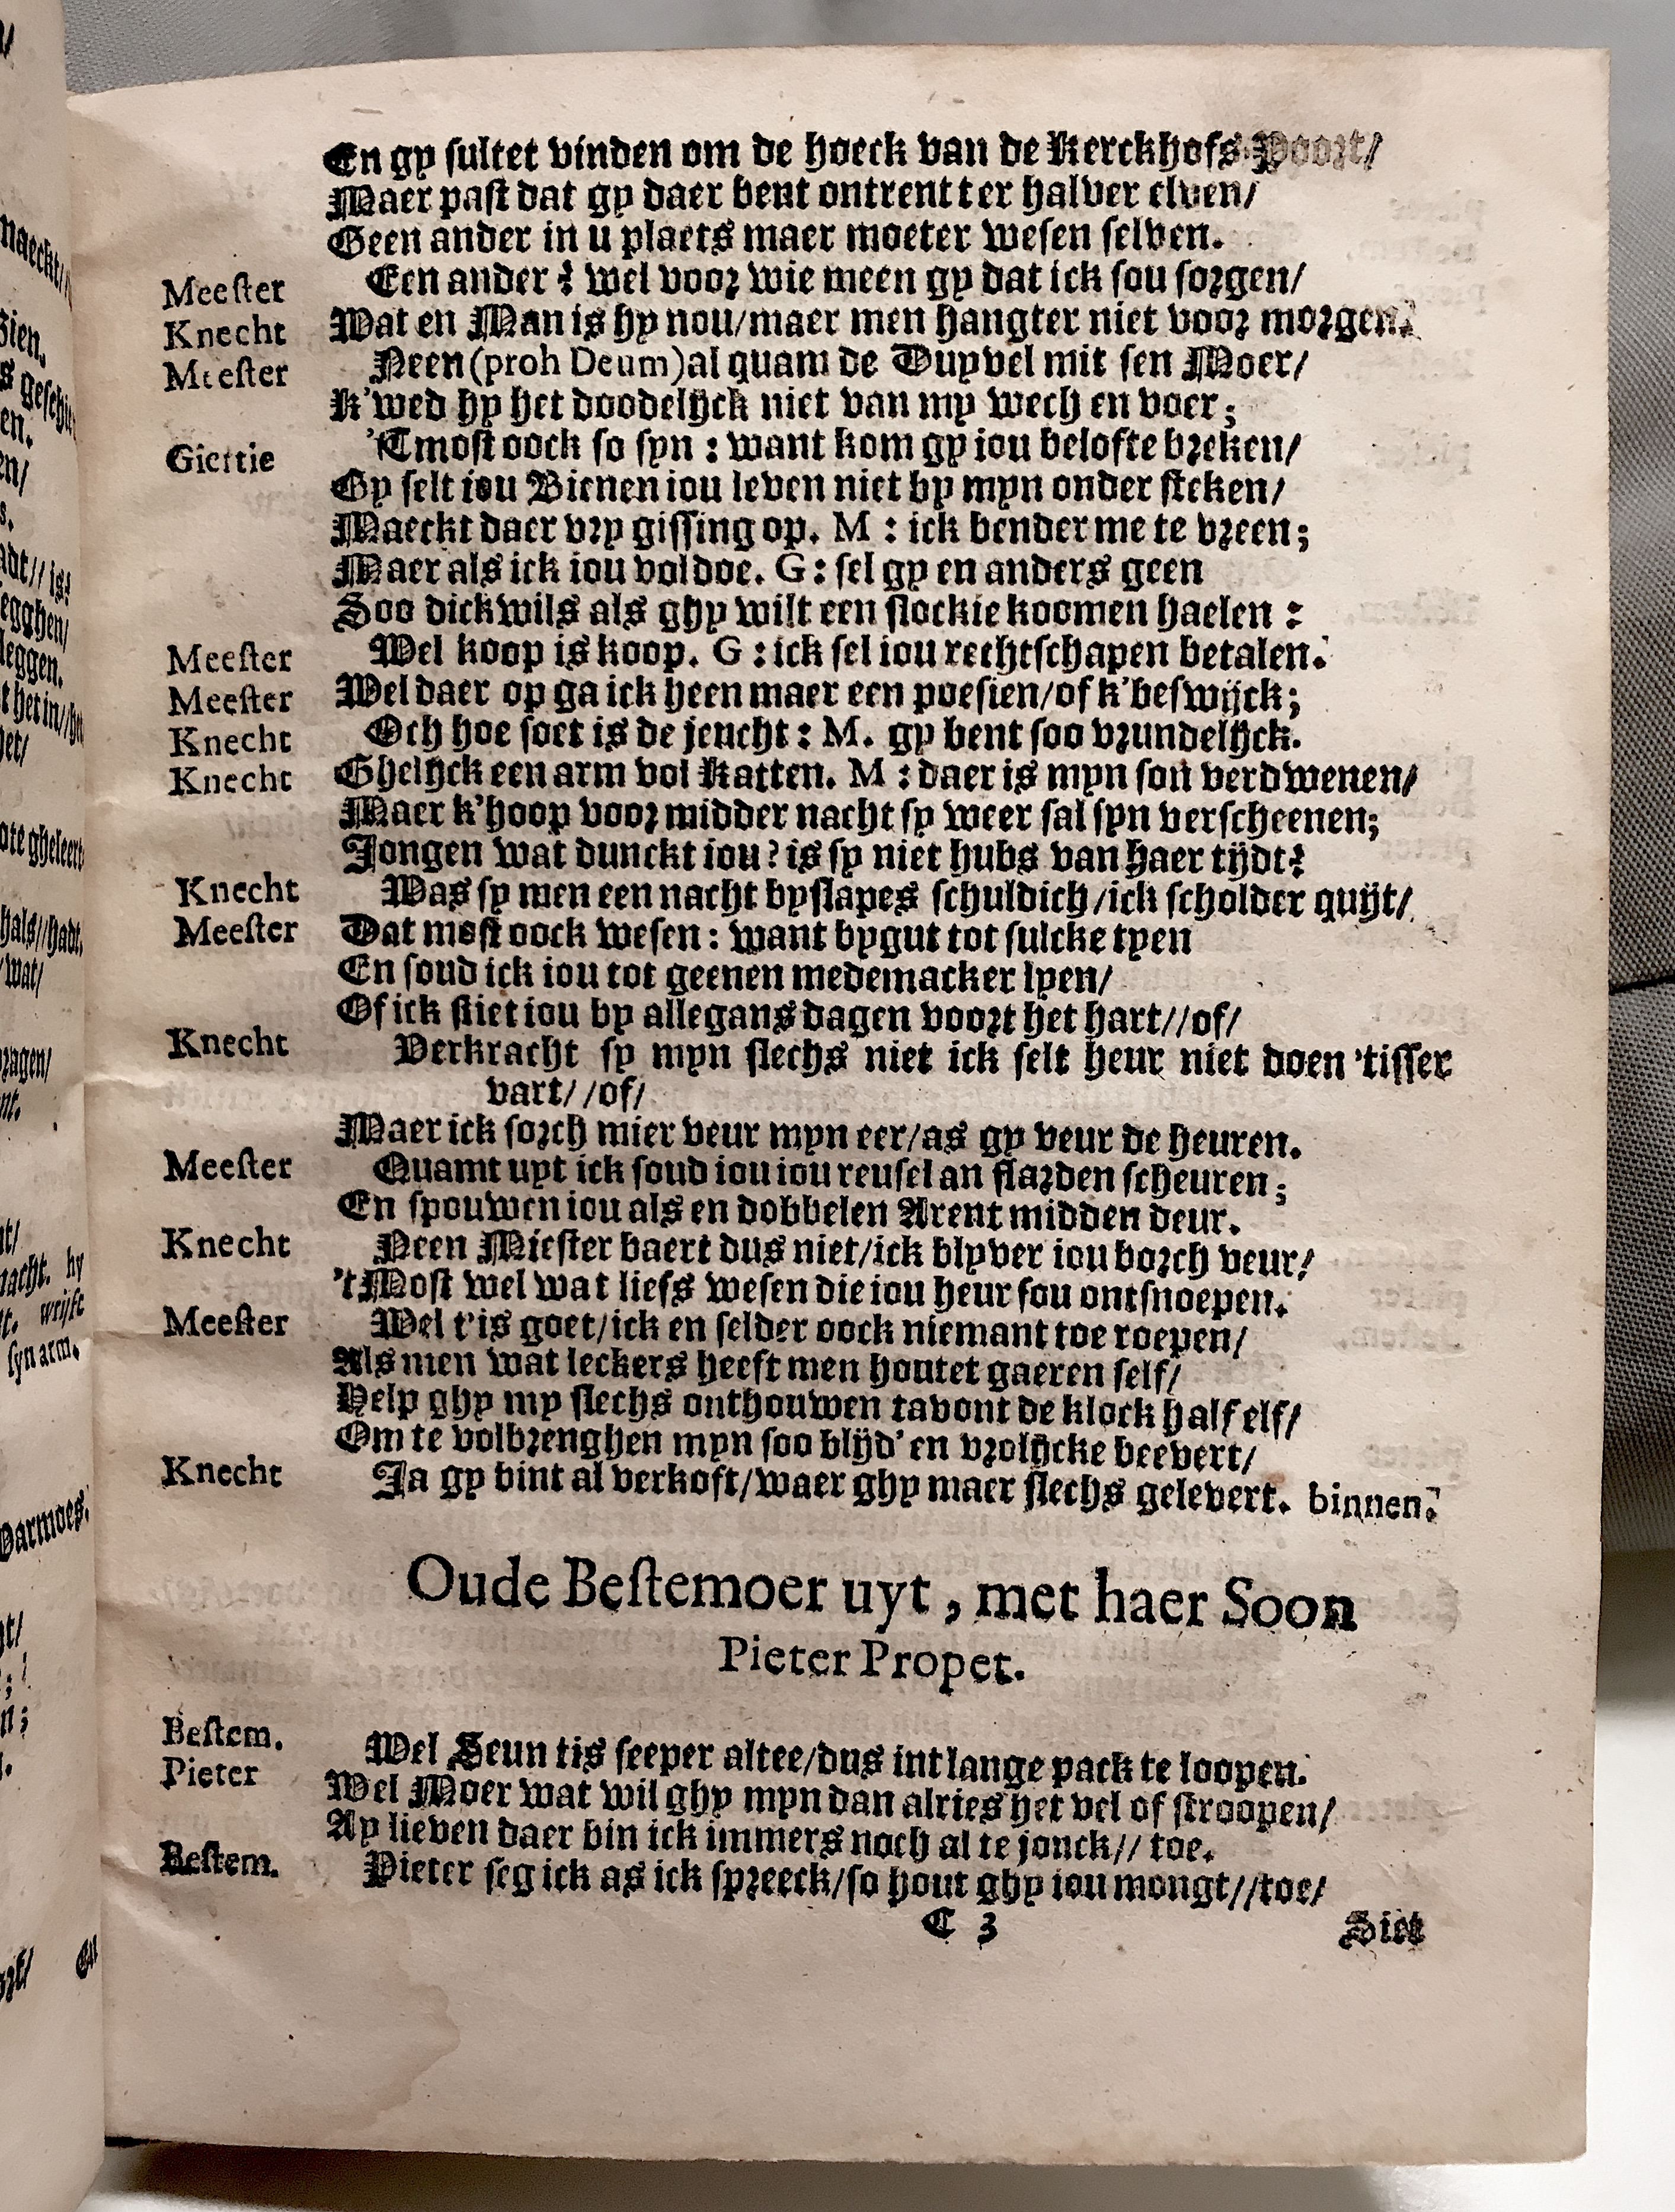 En gy sultet vinden om de hoeck van de Kerckhofs Poort/
Maer past dat gy daer bent ontrent ter halver elven/
Geen ander in u plaets maer moeter wesen selven.
Meester Een ander? wel voor wie meen gy dat ick sou sorgen/
Knecht Wat en Man is hy nou/maer men hangter niet voor morgen.
Meester Neen (proh Deum) al quam de Duyvel mit sen Moer/
K'wed hy het doodelijck niet van my wech en voer;
Giertie 'Tmost oock so syn: want kom gy iou belofte breken/
Gy selt iou Bienen iou leven niet by myn onder steken/
Maeckt daer vry gissing op. M: ick bender me te vreen;
Maer als ick iou voldoe. G: sel gy en anders geen
Soo dickwils als ghy wilt een slockie koomen haelen:
Meester Wel koop is koop. G: ick sel iou rechtschapen betalen.
Meester Wel daer op ga ick heen maer een poesien/of k'beswijck;
Knecht Och hoe soet is de jeucht: M. gy bent soo vrundelijck.
Knecht Ghelijck een arm vol Katten. M: daer is myn son verdwenen/
Maer k'hoop voor midder nacht sy weer sal syn verscheenen;
Jongen wat dunckt iou? is sy niet hubs van haer tijdt?
Knecht Was sy men een nacht byslapes schuldich/ick scholder quijt/
Meester Dat most oock wesen: want bygut tot sulcke tyen
En soud ick iou tot geenen medemacker lyen/
Of ick stiet iou by allegans dagen voort het hart//of/
Knecht Verkracht sy myn slechs niet ick selt heur niet doen 'tisser
vart//of/
Maer ick sorch mier veur myn eer/as gy veur de heuren.
Meester Quamt uyt ick soud iou iou reusel an flarden scheuren;
En spouwen iou als en dobbelen Arent midden deur.
Knecht Neen Miester baert dus niet/ick blyver iou borch veur/
't Most wel wat liefs wesen die iou heur sou ontsnoepen.
Meester Wel t'is goet/ick en selder oock niemant toe roepen/
Als men wat leckers heeft men houtet gaeren self/
Help ghy my slechs onthouwen tavont de klock half elf/
Om te volbrenghen myn soo blijd' en vrolijcke beevert/
Knecht Ja gy bint al verkoft/waer ghy maer slechs gelevert. binnen.
Oude Bestemoer uyt, met haer Soon
Pieter Propet.
Bestem. Wel Seun tis seeper altee/dus int lange pack te loopen.
Pieter Wel Moer wat wil ghy myn dan alries het vel of stroopen/
Ay lieven daer bin ick immers noch al te jonck// toe.
Bestem. Pieter seg ick as ick spreeck/so hout ghy iou mongt//toe/
C 3
Siet